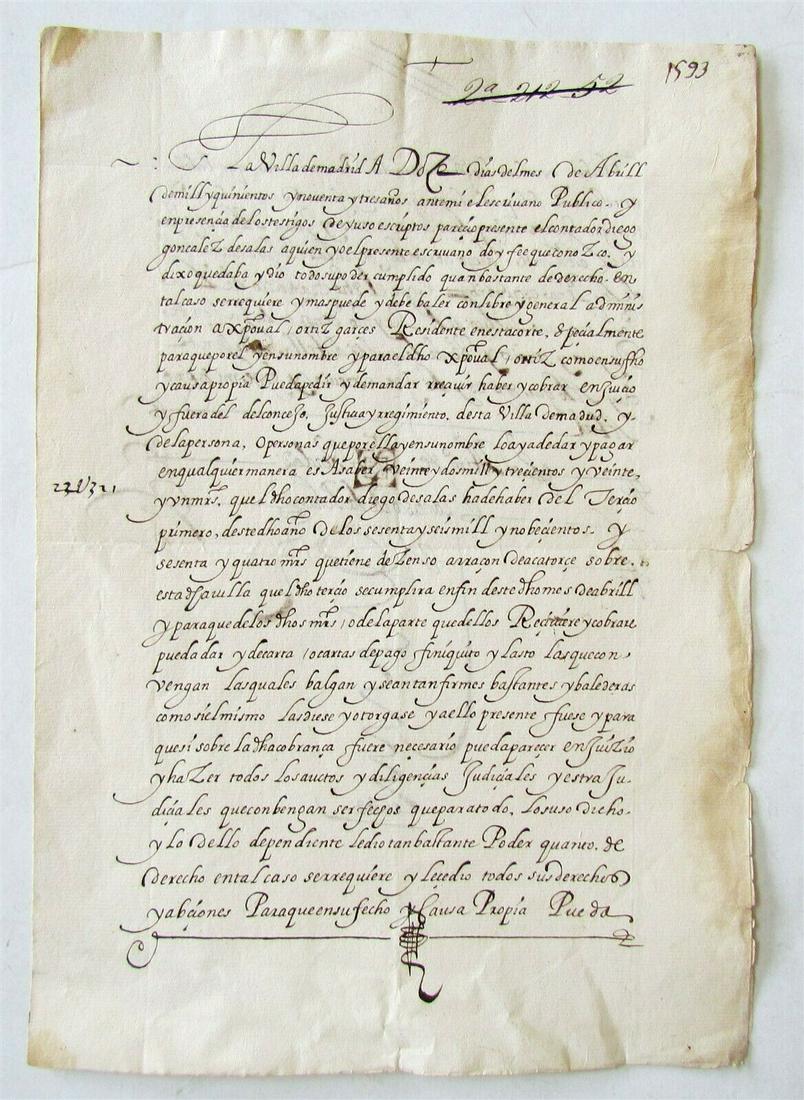 1593
2ª 212-52
La Villa de madrid A DoZe dias del mes de Abrill
de mill y quinientos y noventa y tres años ante mi el escrivano Publico y
en presençia de los testigos de yuso escriptos pareçio presente el contador diego
gonçaleZ de salas a quien yo el presente escrivano doy fee que conoZco. y
dixo que daba y dio todo su poder cumplido quan bastante de derecho en
tal caso se rrequiere y mas puede y debe baler con libre y general adminis
traçion a xpoval ortiZ garçes Residente en esta corte, espeçialmente
para que por el y en su nombre y para el dho xpoval ortiZ como en su fho
y causa propia Pueda pedir y demandar rreçivir haber y cobrar en Juiçio
y fuera del del conçejo, Justiçia y rregimiento desta Villa de madrid, y
de la persona, o personas que por ella y en su nombre lo aya de dar y pagar
en qualquier manera es Asaber Veinte y dos mill y trecientos y veinte
22U321
y un mrs. que el dho contador diego de salas ha de haber del Terçio
primero, deste dho año de los sesenta y seis mill y nobeçientos y
sesenta y quatro mrs que tiene de Zenso a rraçon de a catorçe sobre
esta dha villa que el dho terçio se cumplira en fin deste dho mes de abrill
y para que de los dhos mrs, o de la parte que dellos Reçiviere y cobrare
pueda dar y de carta, o cartas de pago finiquito y lasto las que con
vengan las quales balgan y sean tan firmes bastantes y balederas
como si el mismo las diese y otorgase y a ello presente fuese y para
que si sobre la dha cobrança fuere necesario pueda pareçer en JuiZio
y haZer todos los auctos y diligençias Judiçiales y estra Ju-
diçiales que conbengan ser fechos que para todo, lo suso dicho
y lo dello dependiente le dio tan bastante Poder quanto. de
derecho en tal caso se rrequiere y le cedio todos sus derechos
y abçiones Para que en su fecho y Causa Propia Pueda